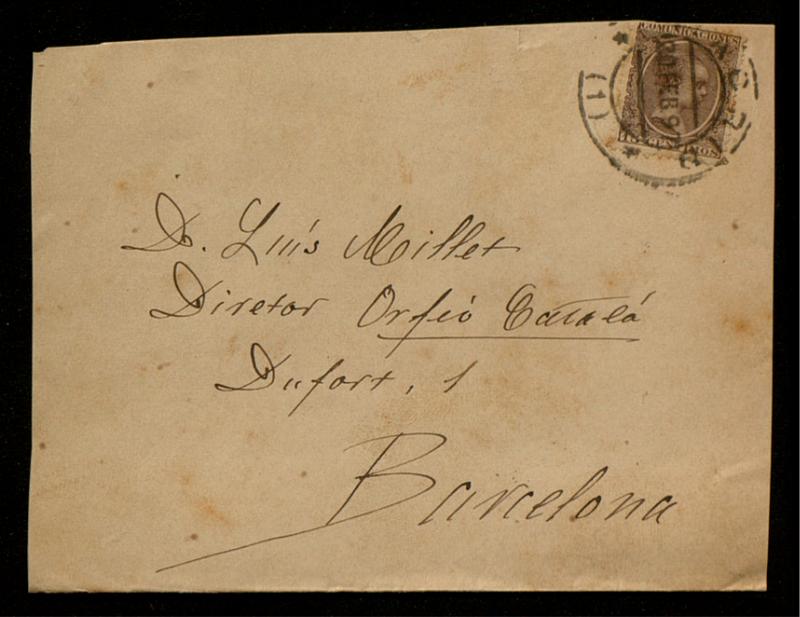 COMUNICACIONES
15 CENTIMOS
(1)
D. Luis Millet
Diretor Orfeó Catalá
Dufort, 1
Barcelona